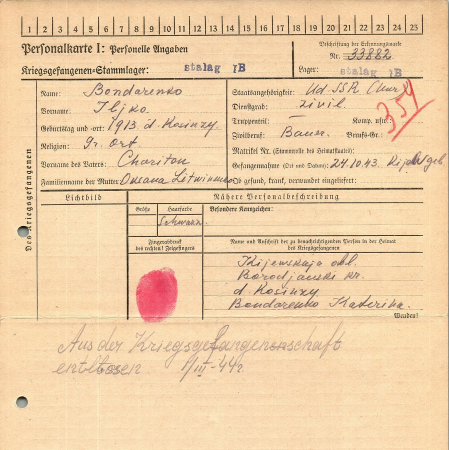 1 2 3 4 5 6 7 8 9 10 11 12 13 14 15 16 17 18 19 20 21 22 23 24 25
Personalkarte I: Personelle Angaben
Beschriftung der Erkennungsmarke
Nr. 33882
Kriegsgefangenen-Stammlager: stalag IB
Lager: stalag IB
Des Kriegsgefangenen
Name: Bondarenko
Vorname: Iljko.
Geburtstag und -ort: 1913. d. Kosinzy.
Religion: gr. ort
Vorname des Vaters: Chariton
Familienname der Mutter: Oksana Litwinenko
Staatsangehörigkeit: Ud SSR
Dienstgrad: zivil.
Truppenteil: – Komp. usw.:
Zivilberuf: Bauer. Berufs-Gr.:
357
Matrikel Nr. (Stammrolle des Heimatstaates):
Gefangennahme (Ort und Datum): 24.10.43.
Ob gesund, krank, verwundet eingeliefert:
Lichtbild
Nähere Personalbeschreibung
Größe
Haarfarbe
Schwarz.
Besondere Kennzeichen:
Fingerabdruck
des rechten! Zeigefingers
Name und Anschrift der zu benachrichtigenden Person in der Heimat
des Kriegsgefangenen
Kijewskaja obl.
Borodjanski kr.
d. Kosinzy
Bondarenko Katerina.
Wenden!
Aus der Kriegsgefangenenschaft
entlossen 1/III-44 r.